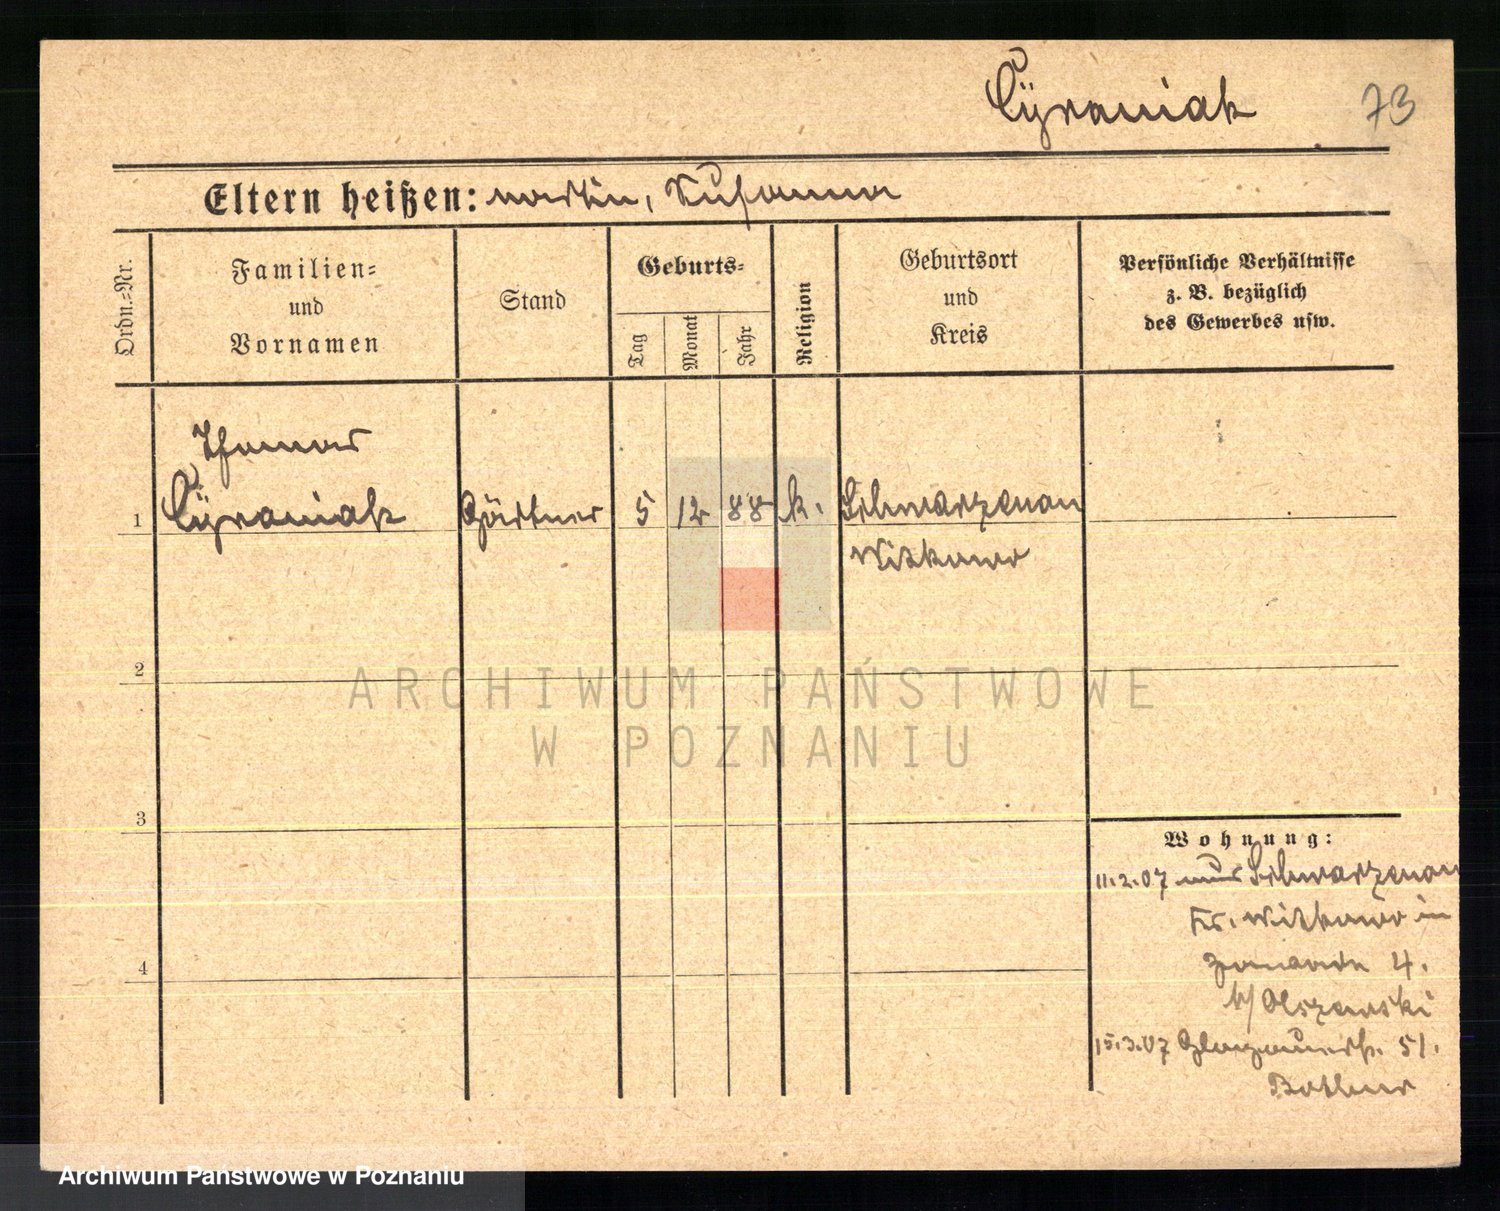 Cÿraniak 73
Eltern heißen: Martin, Susanna
Ordn.=Nr.
Familien=
und
Vornamen
Stand
Geburts=
Tag
Monat
Jahr
Religion
Geburtsort
und
Kreis
Persönliche Verhältnisse
z. B. bezüglich
des Gewerbes usw.
Thomas
1 Cÿraniak Gärtner 5 12 88 k. Schwarzenau
Witkowo
2
ARCHIWUM PAŃSTWOWE
W POZNANIU
3
Wohnung:
11.2.07 aus Schwarzenau
Kr. Witkowo in
Zawade 4.
b/ Olszewski
15.3.07 51.
Bothner
4
Archiwum Państwowe w Poznaniu